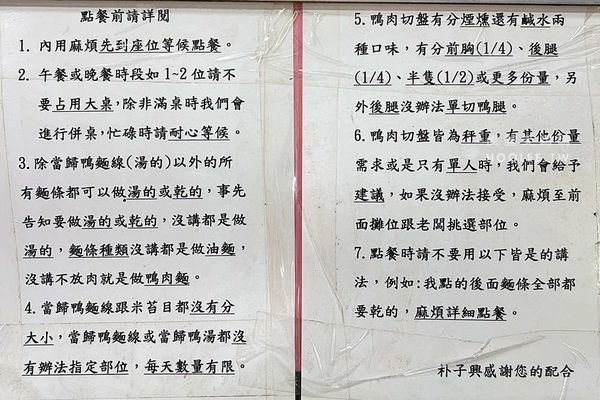 點餐前請詳閱
1. 內用麻煩先到座位等候點餐。
2. 午餐或晚餐時段如 1~2 位請不
要占用大桌，除非滿桌時我們會
進行併桌，忙碌時請耐心等候。
3. 除當歸鴨麵線(湯的)以外的所
有麵條都可以做湯的或乾的，事先
告知要做湯的或乾的，沒講都是做
湯的，麵條種類沒講都是做油麵，
沒講不放肉就是做鴨肉麵。
4. 當歸鴨麵線跟米苔目都沒有分
大小，當歸鴨麵線或當歸鴨湯都沒
有辦法指定部位，每天數量有限。
5. 鴨肉切盤有分煙燻還有鹹水兩
種口味，有分前胸(1/4)、後腿
(1/4)、半隻(1/2)或更多份量，另
外後腿沒辦法單切鴨腿。
6. 鴨肉切盤皆為秤重，有其他份量
需求或是只有單人時，我們會給予
建議，如果沒辦法接受，麻煩至前
面攤位跟老闆挑選部位。
7. 點餐時請不要用以下皆是的講
法，例如:我點的後面麵條全部都
要乾的，麻煩詳細點餐。
朴子興感謝您的配合